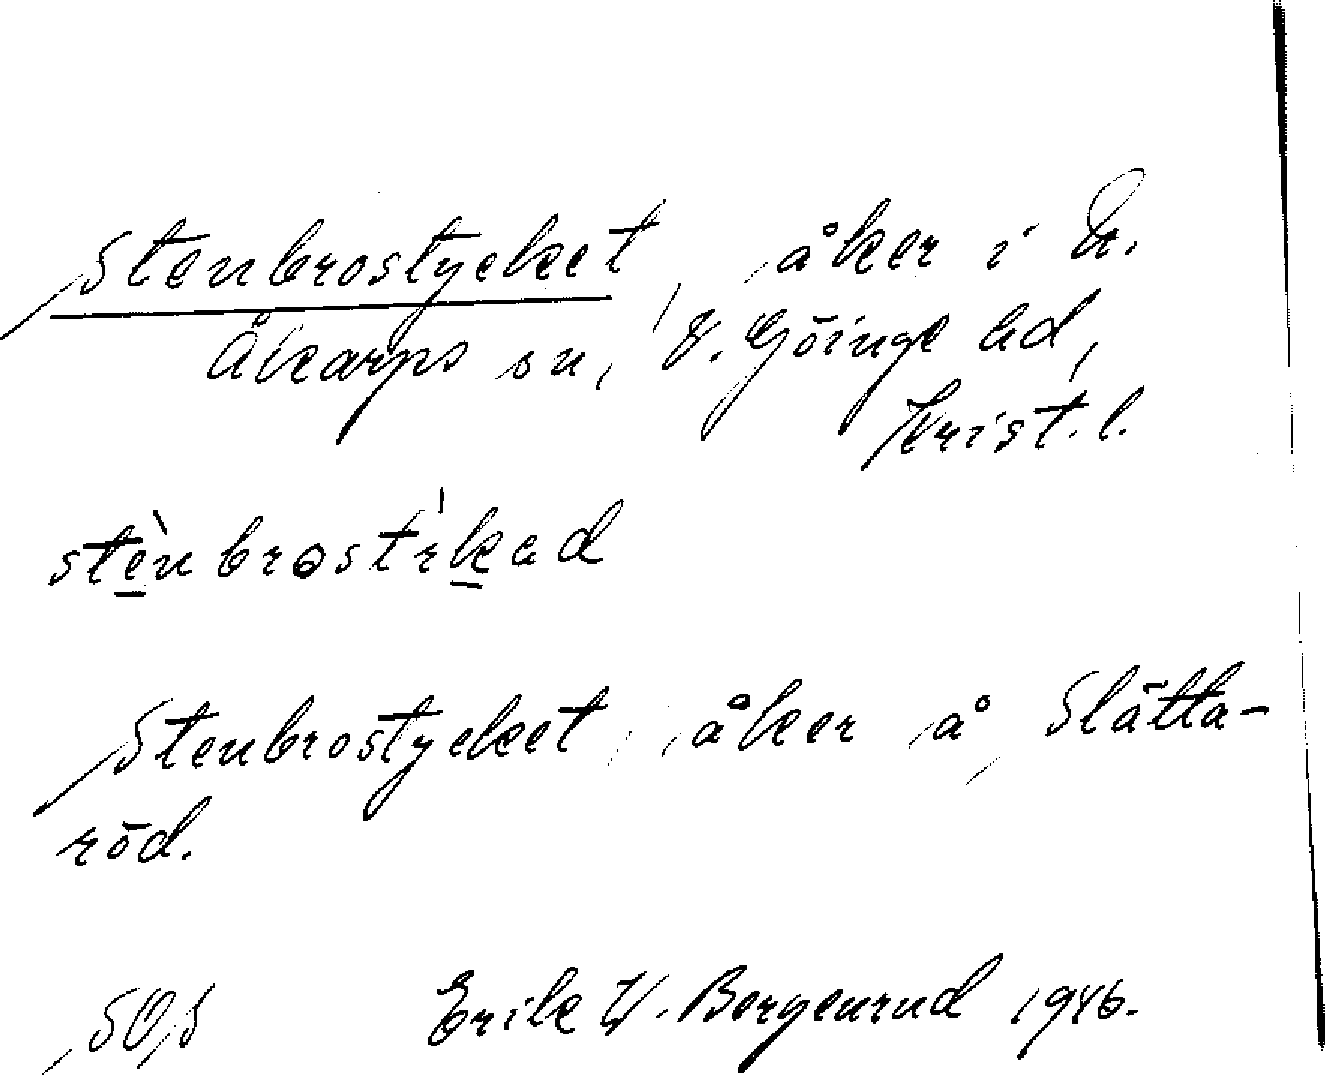 Stenbrostycket, åker i N.
Åkarps sn, V. Göinge hd,
Krist. l.
stènbrostᵢ́kad
Stenbrostycket, åker å Slätta-
röd.
SOS Erik W. Bergenrud 1946.